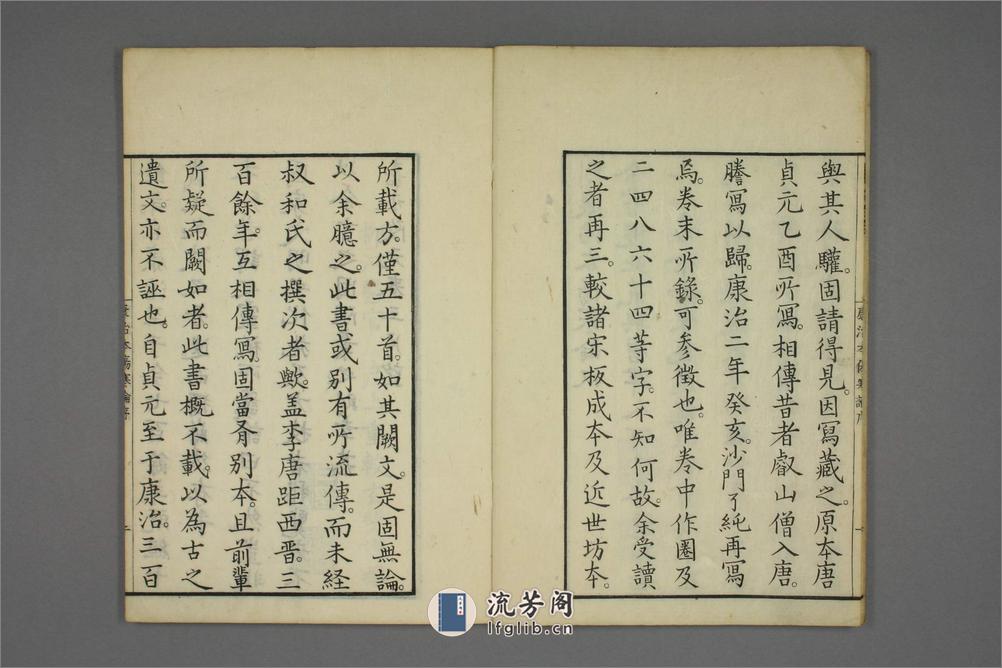 與其人驩。固請得見。因寫藏之。原本唐
貞元乙酉所寫。相傳昔者叡山僧入唐。
謄寫以歸。康治二年癸亥。沙門了純再寫
焉。卷末所錄。可參徵也。唯卷中作圈及
二四八六十四等字。不知何故。余受讀
之者再三。較諸宋板成本及近世坊本。
康治本傷寒論序
所載方。僅五十首。如其闕文。是固無論。
以余臆之。此書或別有所流傳。而未経
叔和氏之撰次者歟。盖李唐距西晋。三
百餘年。互相傳寫。固當有別本。且前輩
所疑而闕如者。此書概不載。以為古之
遺文。亦不誣也。自貞元至于康治。三百
康治本傷寒論序
流芳阁
lfglib.cn